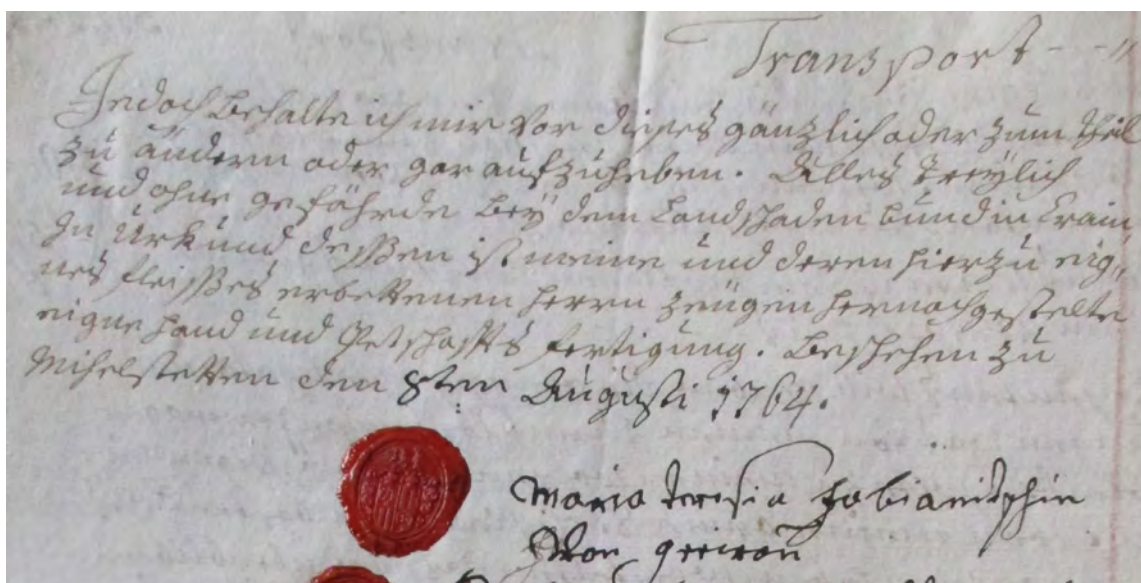 Transport - - "
Jedoch behalte ich mir vor dieses gänzlich oder zum theil
zu ändern oder gar aufzuheben. Alles treylich
und ohne gefährde bey dem Landschaden bund in Crain,
In Urkund dessen ist meine und deren hierzu eig„
nes fleisses erbettenen herrn zeugen hernachgestelte
eigne hand und Petschaffts fertigung. Beschehen zu
Michelstetten den 8ten Augusti 1764.
Maria Teresia
Von